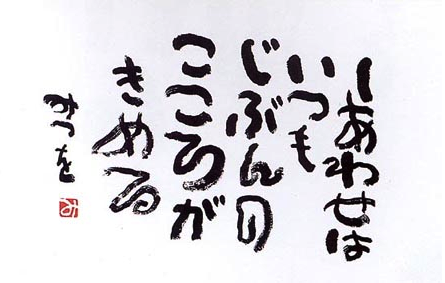 しあわせは
いつも
じぶんの
こころが
きめる
みつを
み